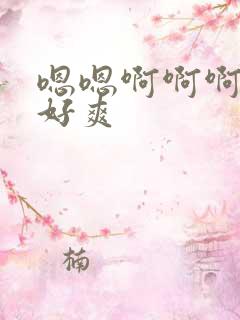 嗯嗯啊啊啊
好爽
楠